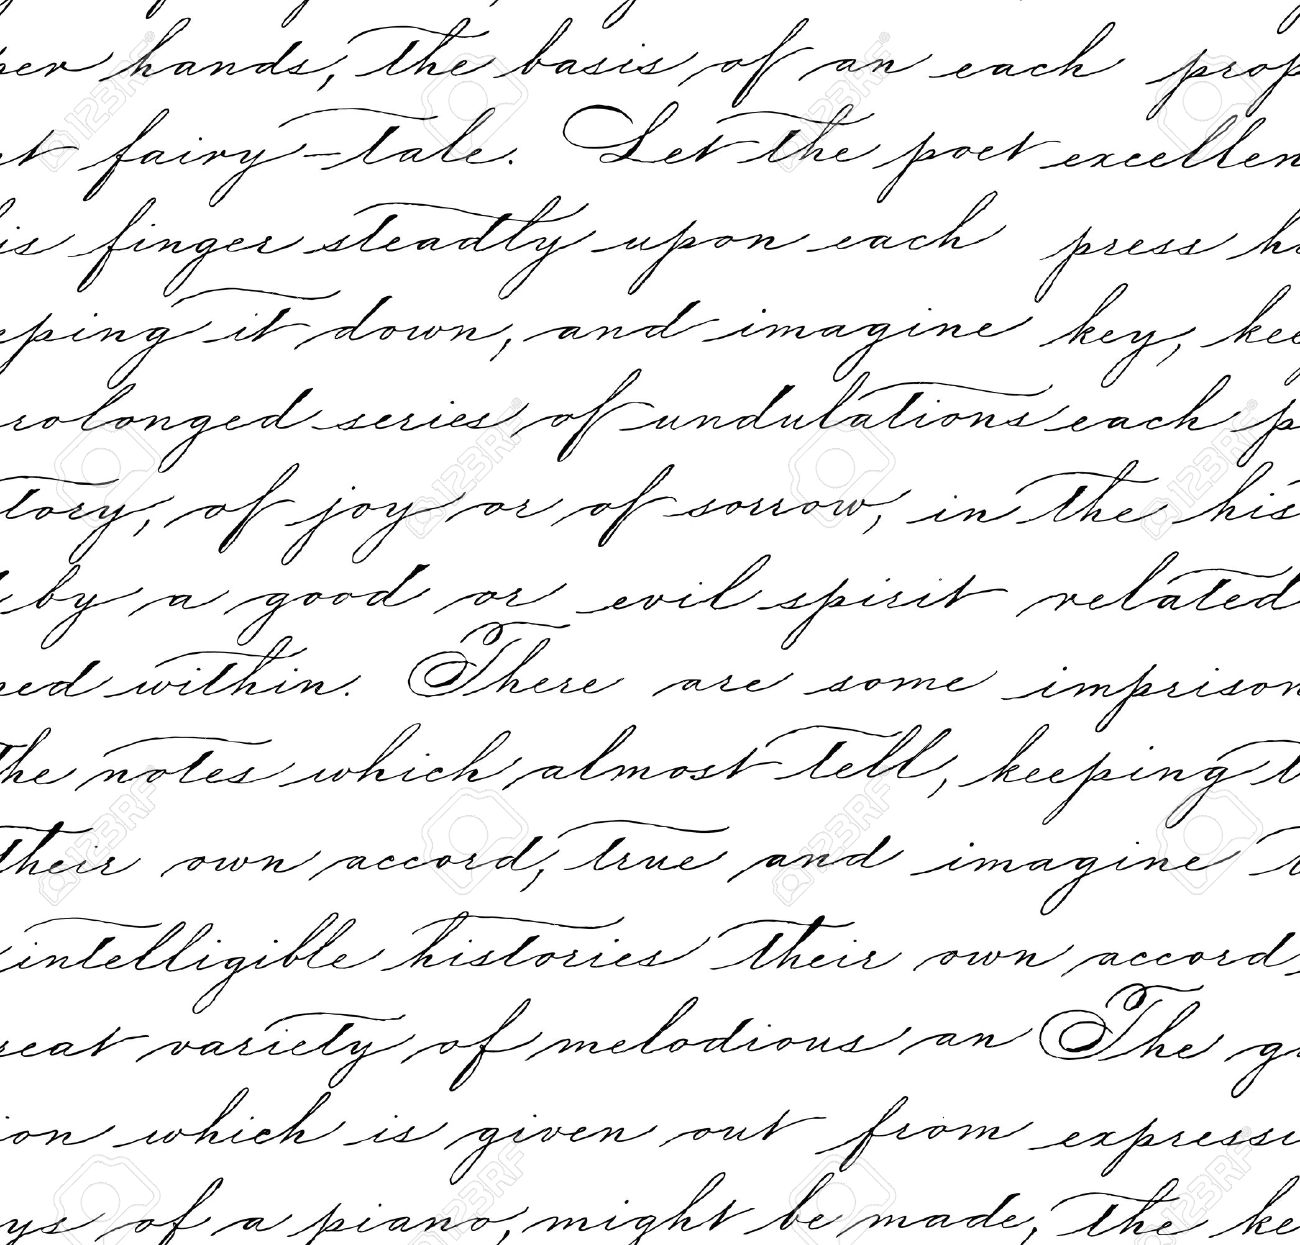 per hands, the basis of an each prop
nt fairy-tale. Let the poet excellen
is finger steadly upon each press hi
eping it down, and imagine key, kee
rolonged series of undulations each p
tory, of joy or of sorrow, in the his
d by a good or evil spirit related
ned within. There are some imprison
the notes which almost tell, keeping t
their own accord, true and imagine i
intelligible histories their own accord,
reat variety of melodious an The gr
ion which is given out from expressi
ys of a piano, might be made, the ke
123RF